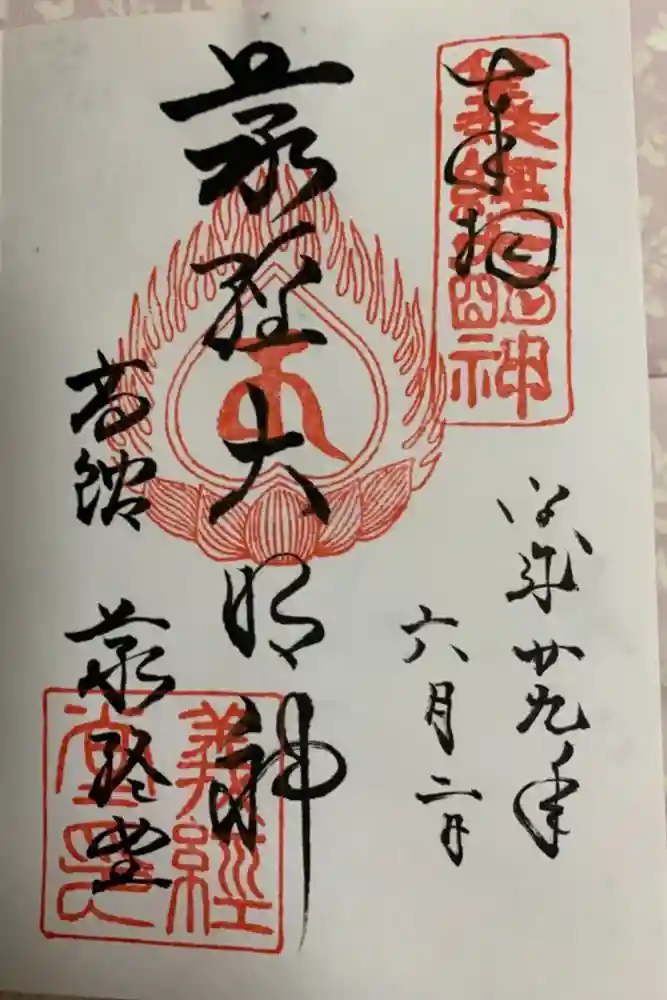 奉拝
義經大明神
平成廿九年
六月二日
義経大明神
高館 義経堂
義經
堂印